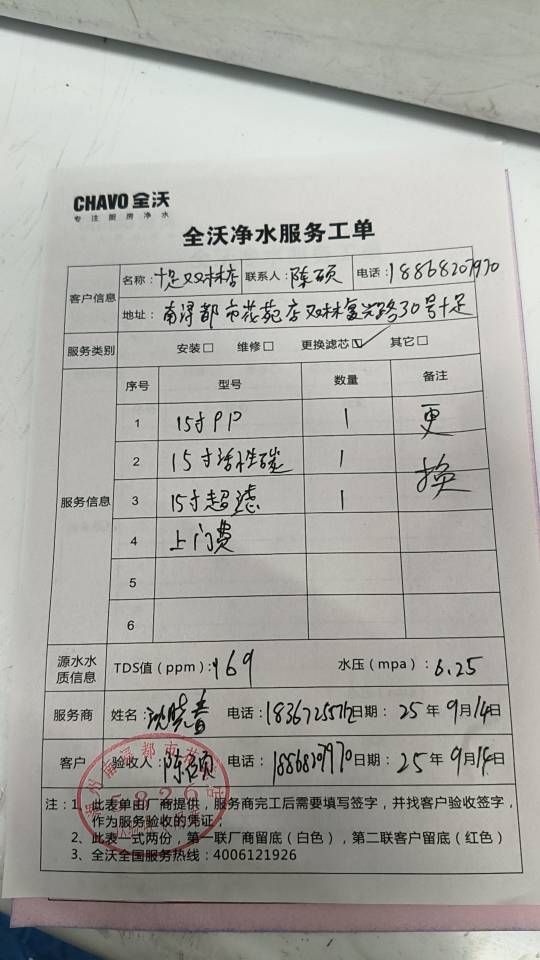 CHAVO 全沃
专注厨房净水
全沃净水服务工单
客户信息
名称：十足双林店 联系人：陈硕 电话：18868207970
地址：南浔都市花苑店双林复兴路30号十足
服务类别 安装□ 维修□ 更换滤芯☑ 其它□
服务信息
序号 型号 数量 备注
1 15寸PP 1 更
2 15寸活性碳 1 换
3 15寸超滤 1
4 上门费
5
6
源水水质信息 TDS值（ppm）：169 水压（mpa）：0.25
服务商 姓名：沈晓春 电话：18367255712 日期：25年9月14日
客户 验收人：陈硕 电话：18868207970 日期：25年9月14日
注：1、此表单由厂商提供，服务商完工后需要填写签字，并找客户验收签字，
作为服务验收的凭证
2、此表一式两份，第一联厂商留底（白色），第二联客户留底（红色）
3、全沃全国服务热线：4006121926
5826